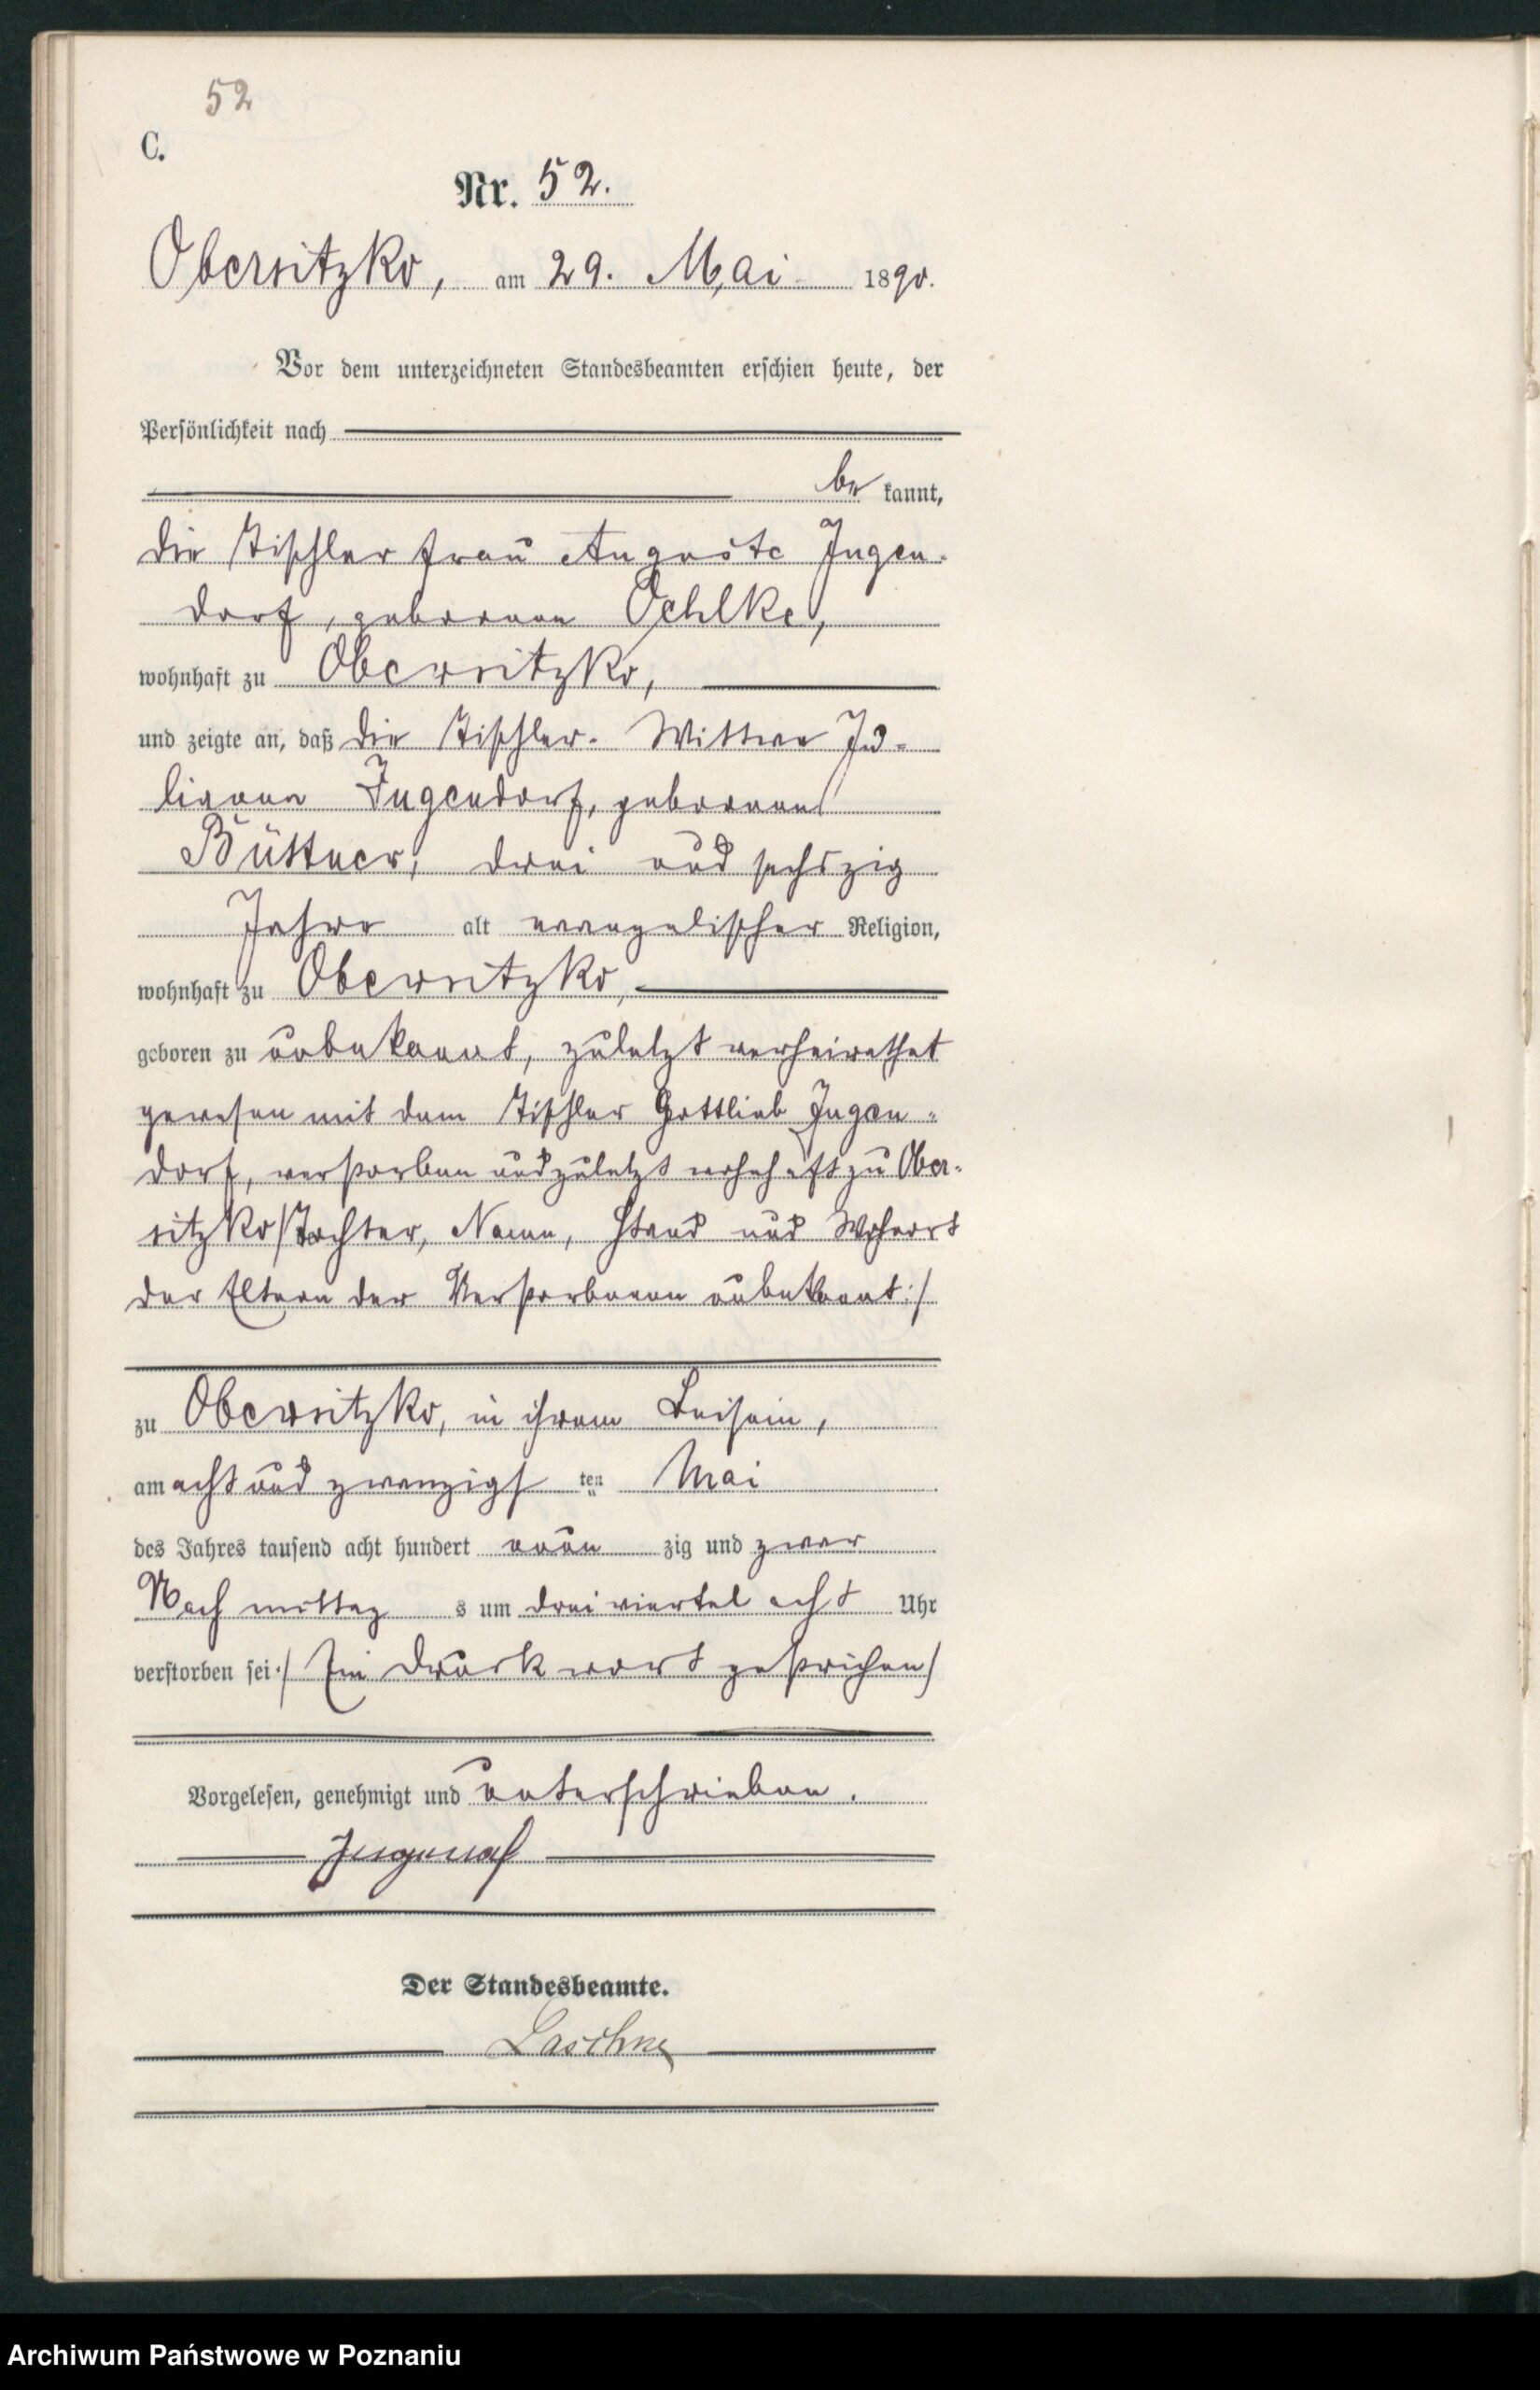 52
C.
Nr. 52.
Obersitzko, am 29. Mai 1890.
Vor dem unterzeichneten Standesbeamten erschien heute, der
Persönlichkeit nach
be kannt,
die Tischlerfrau Auguste Jugen-
dorf, geborene Oehlke,
wohnhaft zu Obersitzko,
und zeigte an, daß die Tischler- Wittwe Ju-
lianne Jugendorf, geborene
Büttner, drei und sechszig
Jahre alt evangelischer Religion,
wohnhaft zu Obersitzko,
geboren zu unbekannt, zuletzt verheirathet
gewesen mit dem Tischler Gottlieb Jugen-
dorf, verstorben und zuletzt wohnhaft zu Ober-
sitzko /Tochter, Name, Stand und Wohnort
der Eltern der Verstorbenen unbekannt:/
zu Obersitzko, in ihrem Beisein,
am acht und zwanzigs ten Mai
des Jahres tausend acht hundert neun zig und zwar
Nachmittag s um drei viertel acht Uhr
verstorben sei :/ Ein Druckwort gestrichen/
Vorgelesen, genehmigt und unterschrieben.
Der Standesbeamte.
Laschke
Archiwum Państwowe w Poznaniu